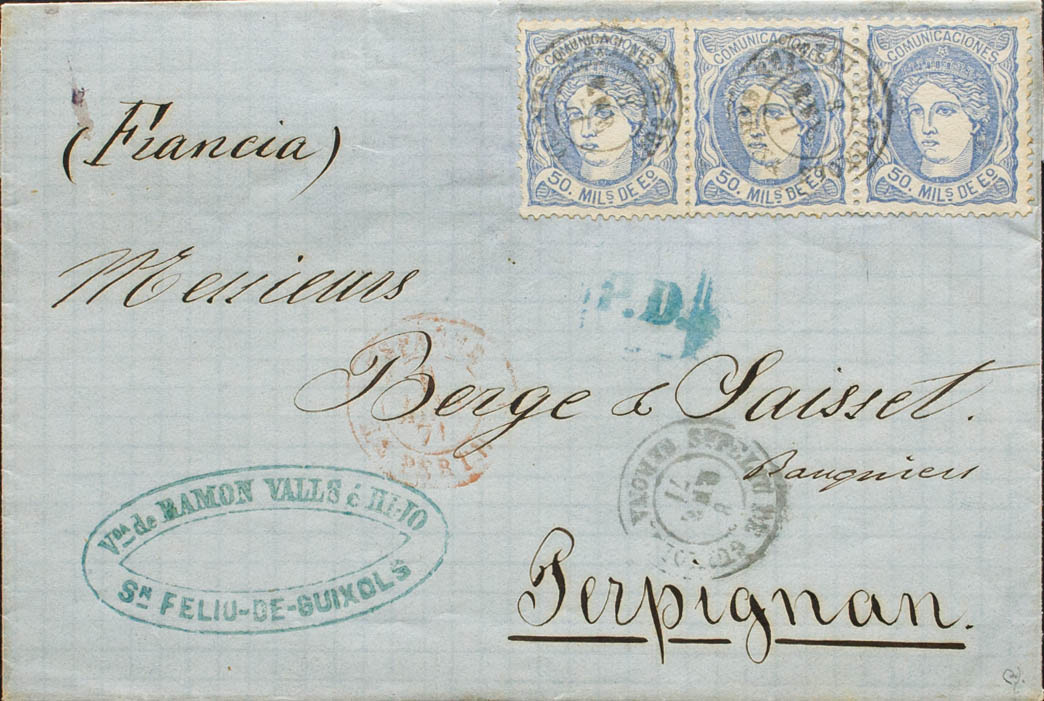 COMUNICACIONES COMUNICACIONES COMUNICACIONES
50. MILS DE EO 50. MILS DE EO 50. MILS DE EO
(Francia)
Messieurs
P.D.
Berge & Saisset.
Banquiers
71
71
VDA de RAMON VALLS é HIJO
SN FELIU-DE-GUIXOLS
Perpignan.